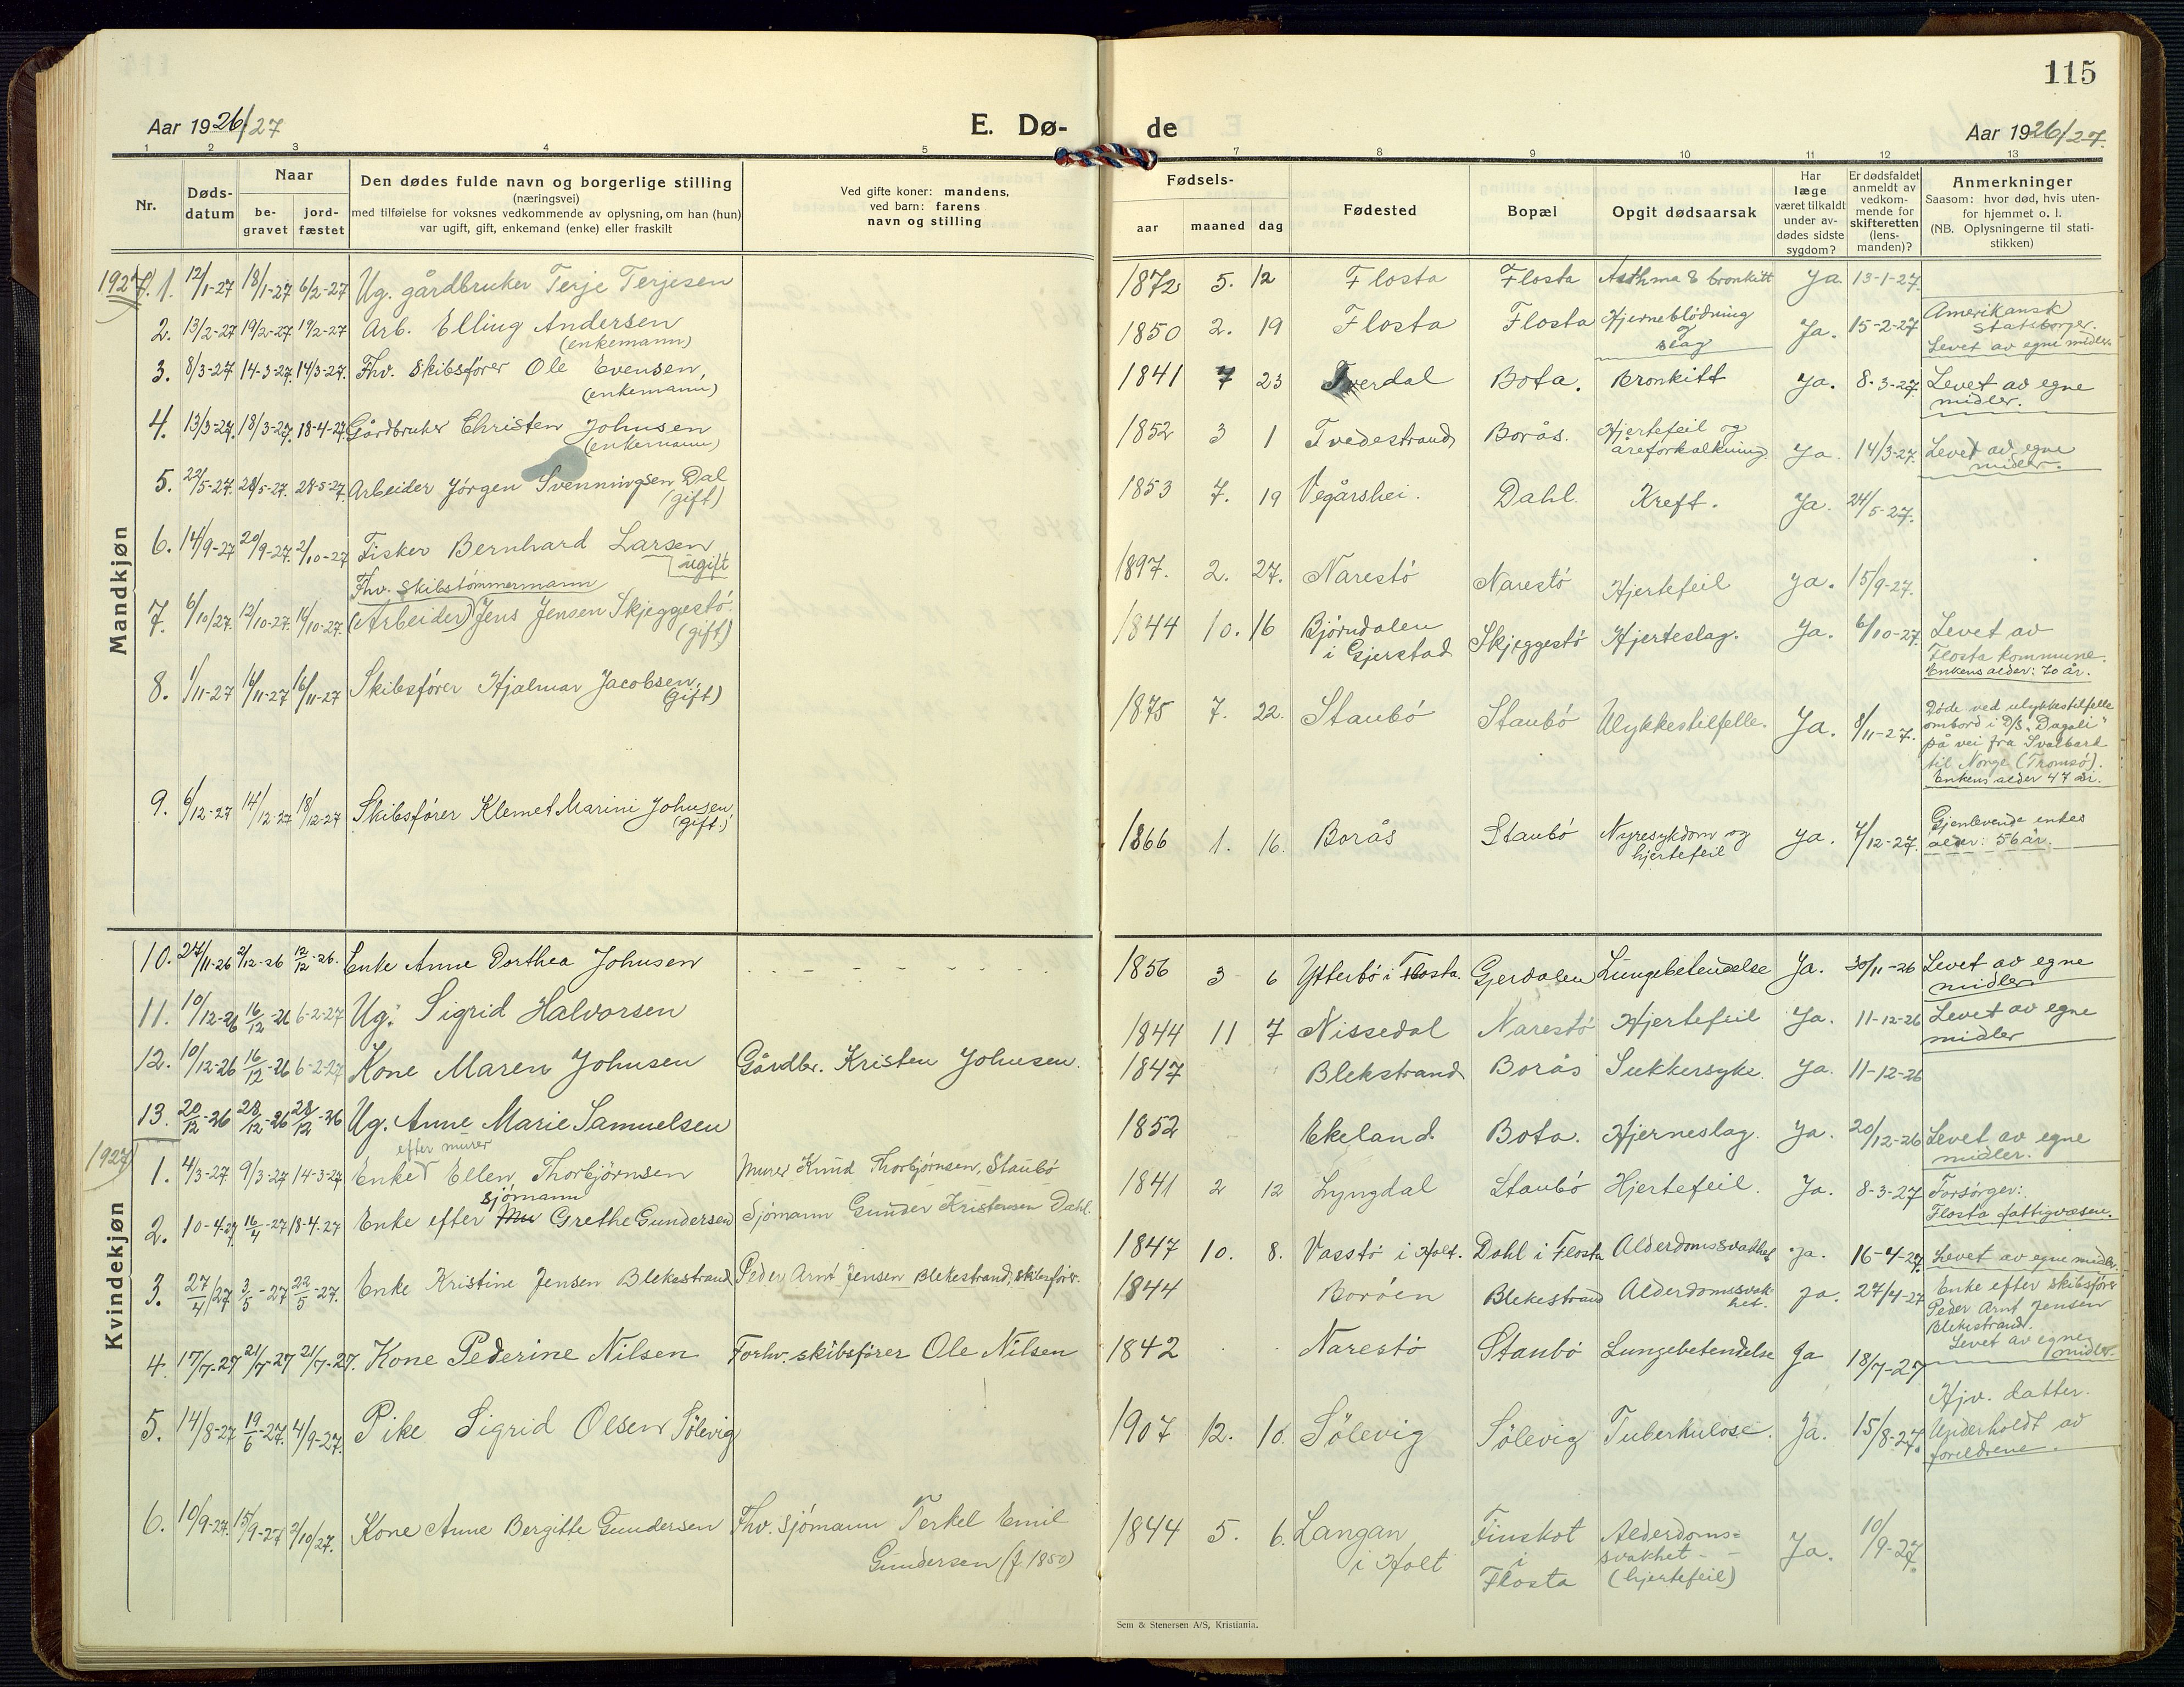 115
Aar 1926/27 E. Dø- de Aar 1926/27.
1 2 3 4 5 7 8 9 10 11 12 13
Nr.
Døds-
datum
Naar
be-
gravet
jord-
fæstet
Den dødes fulde navn og borgerlige stilling
(næringsvei)
med tilføielse for voksnes vedkommende av oplysning, om han (hun)
var ugift, gift, enkemand (enke) eller fraskilt
Ved gifte koner: mandens,
ved barn: farens
navn og stilling
Fødsels-
aar maaned dag
Fødested
Bopæl
Opgit dødsaarsak
Har
læge
været tilkaldt
under av-
dødes sidste
sygdom?
Er dødsfaldet
anmeldt av
vedkom-
mende for
skifteretten
(lens-
manden)?
Anmerkninger
Saasom: hvor død, hvis uten-
for hjemmet o. l.
(NB. Oplysningerne til stati-
stikken)
Mandkjøn
1927. 1. 12/1-27 18/1-27 6/2-27 Ug. gårdbruker Terje Terjesen 1872 5. 12 Flosta Flosta Asthma & bronkitt Ja. 13-1-27.
2. 13/2-27 19/2-27 19/2-27 Arb. Elling Andersen (enkemann) 1850 2. 19 Flosta Flosta Hjerneblödning og slag Ja. 15-2-27 Amerikansk Statsborger. Levet av egne midler.
3. 8/3-27 14-3-27. 14/3-27. Fhv. Skibsfører Ole Evensen, (enkemann) 1841 7 23 Tverdal Bota. Bronkitt Ja. 8-3-27. Levet av egne midler.
4. 13/3-27. 18/3-27. 18-4-27. Gårdbruker Christen Johnsen (enkemann) 1852 3 1 Tvedestrand Borås. Hjertefeil og åreforkalkning. Ja. 14/3-27. Levet av egne midler.
5. 22/5-27. 28/5-27. 28-5-27. Arbeider Jörgen Svenningsen Dal (gift) 1853 7. 19 Vegårshei. Dahl. Kreft. Ja. 24/5-27.
6. 14/9-27 20/9-27. 2/10-27 Fisker Bernhard Larsen ugift 1897. 2. 27. Narestö Narestö Hjertefeil Ja. 15/9-27.
Fhv. Skibstömmermann
7. 6/10/27. 12/10-27. 16/10-27. (Arbeider) Jens Jensen Skjeggestö. (gift) 1844 10. 16 Bjørndalen i Gjerstad Skjeggestö Hjerteslag. Ja. 6/10-27. Levet av Flosta kommune. Enkens alder: 70 år.
8. 1/11-27 16/11-27 16/11-27 Skibsfører Hjalmar Jacobsen, (gift) 1875 7. 22. Staubö Staubö Ulykkestilfelle. Ja. 8/11-27. Døde ved ulykkestilfelle ombord i D/S. "Dagali" på vei fra Svalbard til Norge (Tromsö). Enkens alder 47 år.
9. 6/12-27 14/12-27 18/12-27 Skibsfører Klemet Marini Johnsen (gift) 1866 1. 16. Borås Staubö Nyresykdom og hjertefeil Ja. 7/12-27. Gjenlevende enkes alder: 56 år.
Kvindekjøn
10. 27/11-26 2/12-26 12/12-26. Enke Anne Dorthea Johnsen 1856 3 6 Ytterbö i Flosta. Gjerdalen Lungebetendelse Ja. 30/11-26 Levet av egne midler
11. 10/12-26 16/12-26 6-2-27 Ug. Sigrid Halvorsen 1844 11 7 Nissedal Narestö Hjertefeil Ja. 11-12-26 Levet av egne midler
12. 10/12-26 16/12-26 6-2-27 Kone Maren Johnsen Gårdbr. Kristen Johnsen. 1847 Blekstrand Borås Sukkersyke. Ja. 11-12-26
13. 20/12-26 28/12-26 28/12-26 Ug. Anne Marie Samuelsen 1852 Ekeland Bota. Hjerneslag. Ja. 20/12-26 Levet av egne midler.
1927
efter murer
1. 4/3-27 9/3-27 14-3-27 Enke Ellen Thorbjørnsen Murer Knud Thorbjørnsen, Staubö 1841 2 12 Lyngdal Staubö Hjertefeil. Ja. 8-3-27 Forsörger: Flosta fattigvæsen.
sjømann
2. 10-4-27. 16/4-27 18-4-27 Enke efter Mu Grethe Gundersen Sjömann Gunder Kristensen Dahl. 1847 10. 8. Vasstö i Holt. Dahl i Flosta Alderdomssvakhet Ja. 16-4-27. Levet av egne midler.
3. 27/4/27 3/5-27 22/5-27. Enke Kristine Jensen Blekestrand Peder Arnt Jensen Blekestrand, skibsfører. 1844 Boröen Blekestrand Alderdomssvakhet. Ja. 27/4-27 Enke efter skibsfører Peder Arnt Jensen Blekestrand. Levet av egne midler.
4. 17/7-27 21/7-27 21/7-27. Kone Pederine Nilsen Forhv. skibsfører Ole Nilsen 1842 Narestö Staubö Lungebetendelse Ja 18/7-27
5. 14/8-27 19/6-27. 4/9-27. Pike Sigrid Olsen Sölevig 1907 12. 10. Sölevig Sölevig Tuberkulose. Ja. 15/8-27. Hjv. datter. Underholdt av foreldrene.
6. 10/9-27. 15/9-27 2/10/27. Kone Anne Bergitte Gundersen Fhv. sjömann Terkel Emil Gundersen (f. 1850) 1844 5. 6. Langan i Holt Finskot i Flosta Alderdoms= svakhet - - (hjertefeil) Ja. 10/9-27.
Sem & Stenersen A/S, Kristiania.